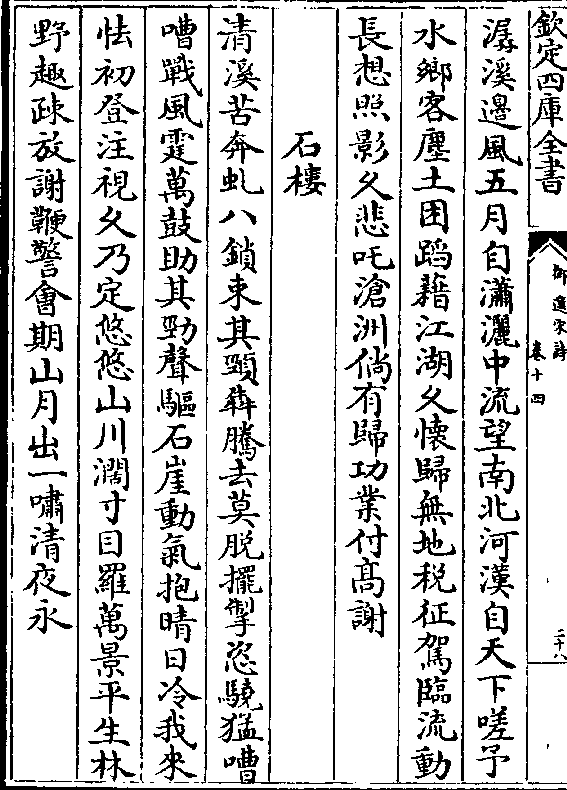 欽定四庫全書
御選宋詩
卷十四
二十八
潺溪邊風五月自瀟灑中流望南北河漢自天下嗟予
水鄉客塵土困蹈藉江湖久懷歸無地稅征駕臨流動
長想照影久悲吒滄洲倘有歸功業付髙謝
石樓
清溪苦奔虬八鎖束其頸犇騰去莫脱擺掣恣驍猛嘈
嘈戰風霆萬鼓助其勁聲驅石崖動氣抱晴日冷我來
怯初登注視久乃定悠悠山川濶寸目羅萬景平生林
野趣疎放謝鞭警會期山月出一嘯清夜永